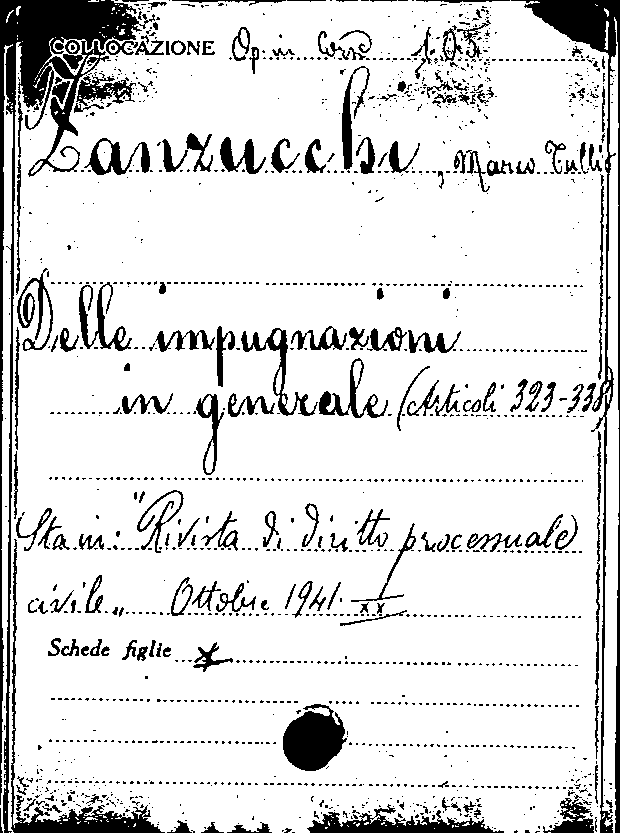 COLLOCAZIONE Op. in Corso 1.03
Zanzucchi, Marco Tullio
Delle impugnazioni
in generale (Articoli 323-338)
Sta in: "Rivista di diritto processuale
civile" Ottobre 1941 - XX
Schede figlie